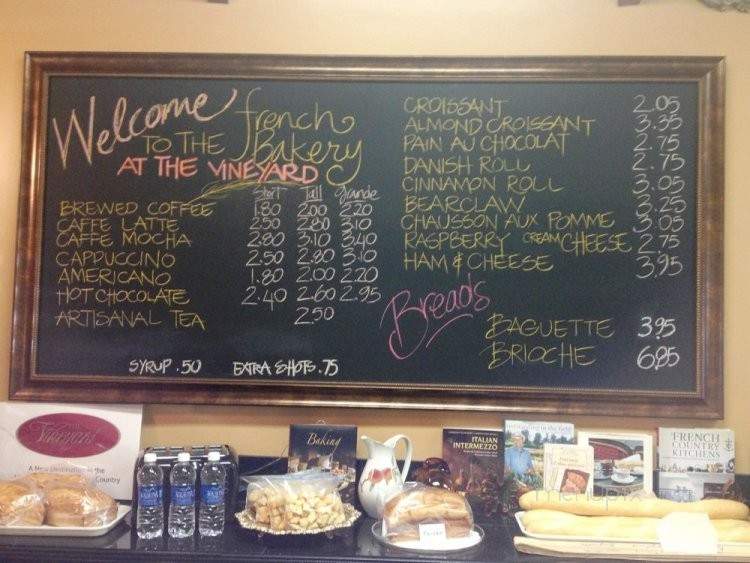 Welcome
TO THE french Bakery
AT THE VINEYARD
Short Tall grande
BREWED COFFEE 1.80 2.00 2.20
CAFFE LATTE 2.50 2.80 3.10
CAFFE MOCHA 2.80 3.10 3.40
CAPPUCCINO 2.50 2.80 3.10
AMERICANO 1.80 2.00 2.20
HOT CHOCOLATE 2.40 2.60 2.95
ARTISANAL TEA 2.50
SYRUP .50 EXTRA SHOTS .75
CROISSANT 2.05
ALMOND CROISSANT 3.35
PAIN AU CHOCOLAT 2.75
DANISH ROLL 2.75
CINNAMON ROLL 3.05
BEARCLAW 3.25
CHAUSSON AUX POMME 3.05
RASPBERRY CREAM CHEESE 2.75
HAM & CHEESE 3.95
Breads
BAGUETTE 3.95
BRIOCHE 6.95
Vineyard
A New Destination in the
Country
Baking
ITALIAN
INTERMEZZO
FRENCH
COUNTRY
KITCHENS